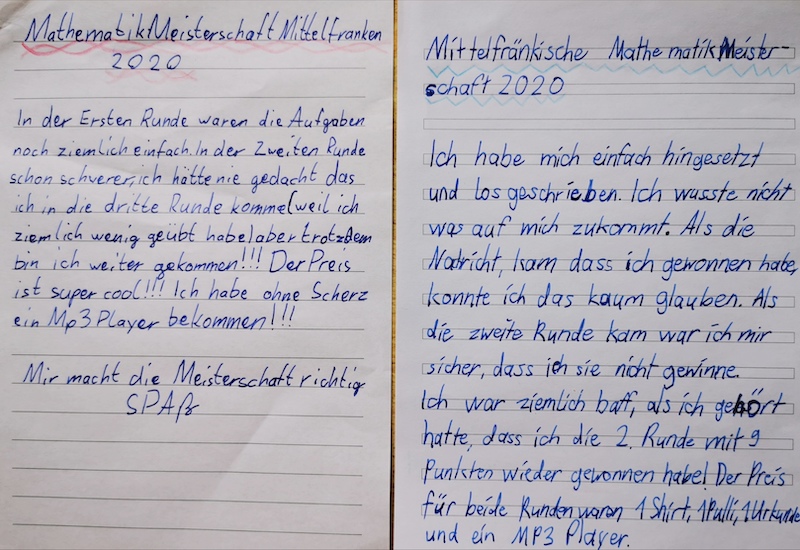 MathematikMeisterschaft Mittelfranken
2020
In der Ersten Runde waren die Aufgaben
noch ziemlich einfach. In der Zweiten Runde
schon schwerer, ich hätte nie gedacht das
ich in die dritte Runde komme (weil ich
ziemlich wenig geübt habe) aber trotzdem
bin ich weiter gekommen!!! Der Preis
ist super cool!!! Ich habe ohne Scherz
ein Mp3 Player bekommen!!!
Mir macht die Meisterschaft richtig
SPAß
Mittelfränkische Mathematik Meister-
schaft 2020
Ich habe mich einfach hingesetzt
und los geschrieben. Ich wusste nicht
was auf mich zukommt. Als die
Natricht, kam dass ich gewonnen habe,
konnte ich das kaum glauben. Als
die zweite Runde kam war ich mir
sicher, dass ich sie nicht gewinne.
Ich war ziemlich baff, als ich gehört
hatte, dass ich die 2. Runde mit 9
Punkten wieder gewonnen habe! Der Preis
für beide Runden waren 1 Shirt, 1 Pulli, 1 Urkunde
und ein MP3 Player.